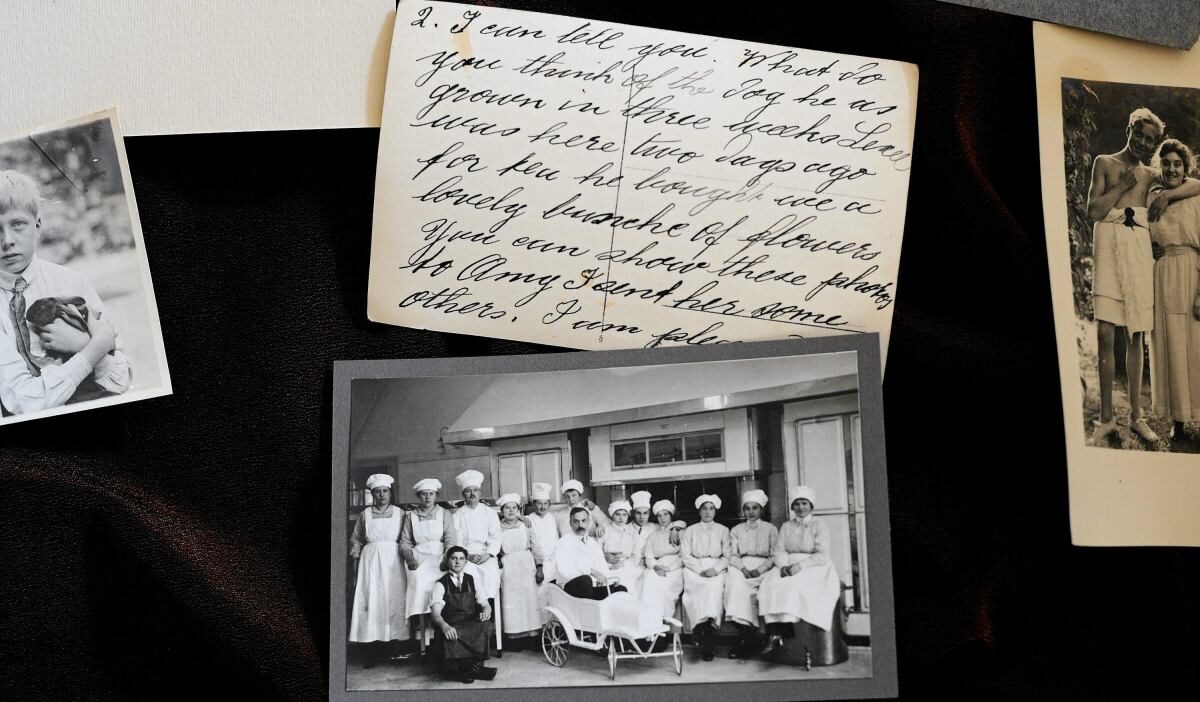 2. I can tell you. What do
you think of the Dog he as
grown in three weeks
was here two days ago
for he bought me a
lovely bunche of flowers
You can show these photos
to Amy I sent her some
others. I am